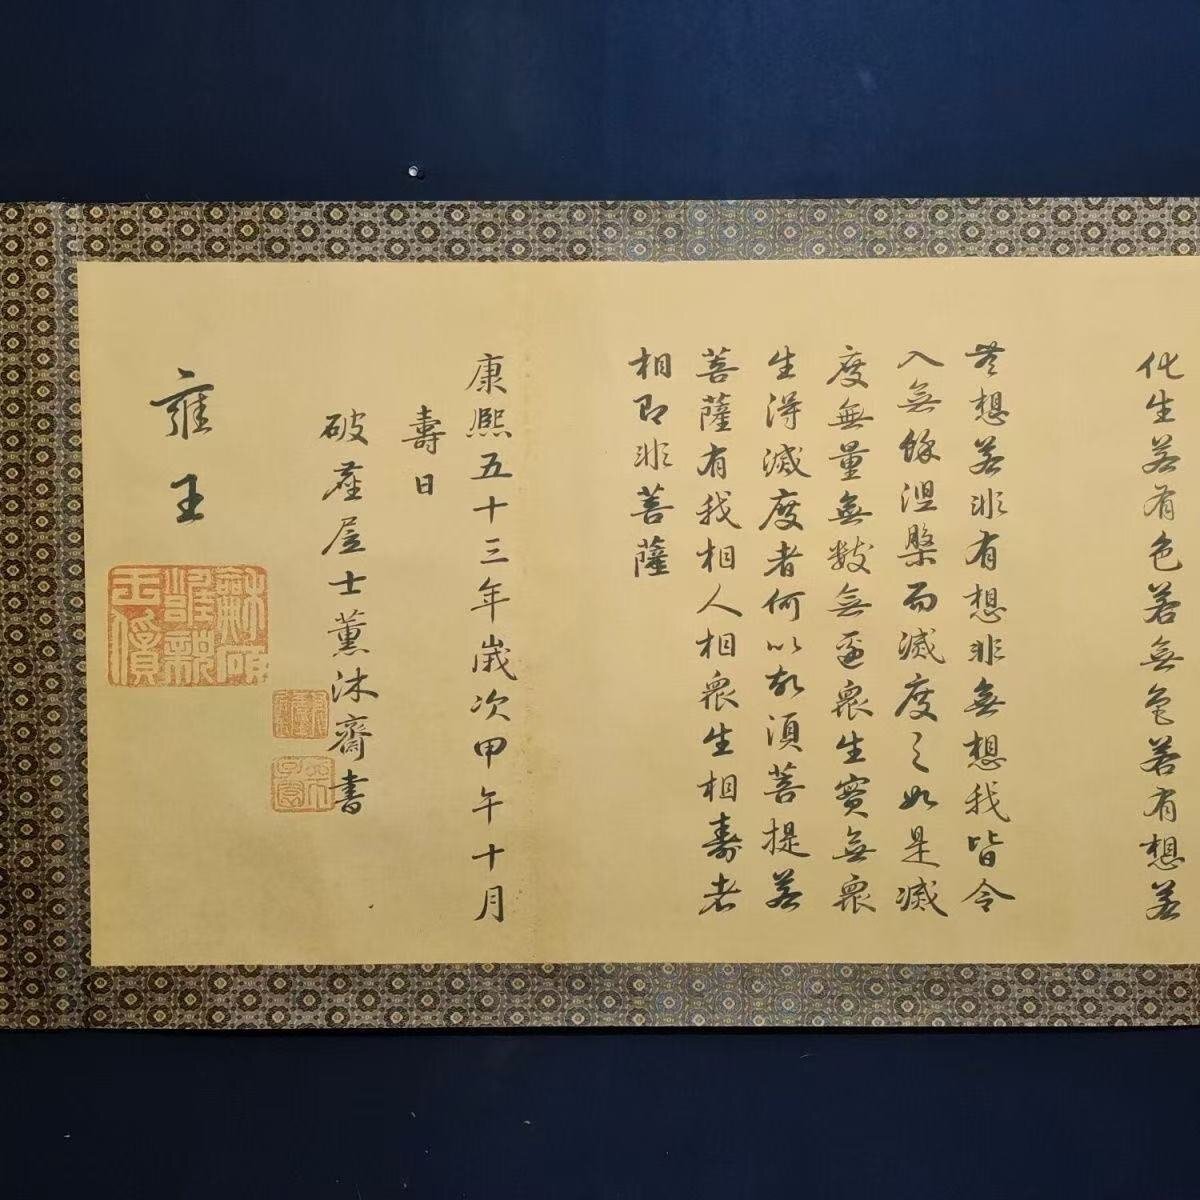 化生若有色若無色若有想若
無想若非有想非無想我皆令
入無餘涅槃而滅度之如是滅
度無量無數無邊眾生實無眾
生得滅度者何以故須菩提若
菩薩有我相人相眾生相壽者
相即非菩薩
康熙五十三年歲次甲午十月
壽日
破塵居士薰沐齋書
雍王
和碩雍親王寶